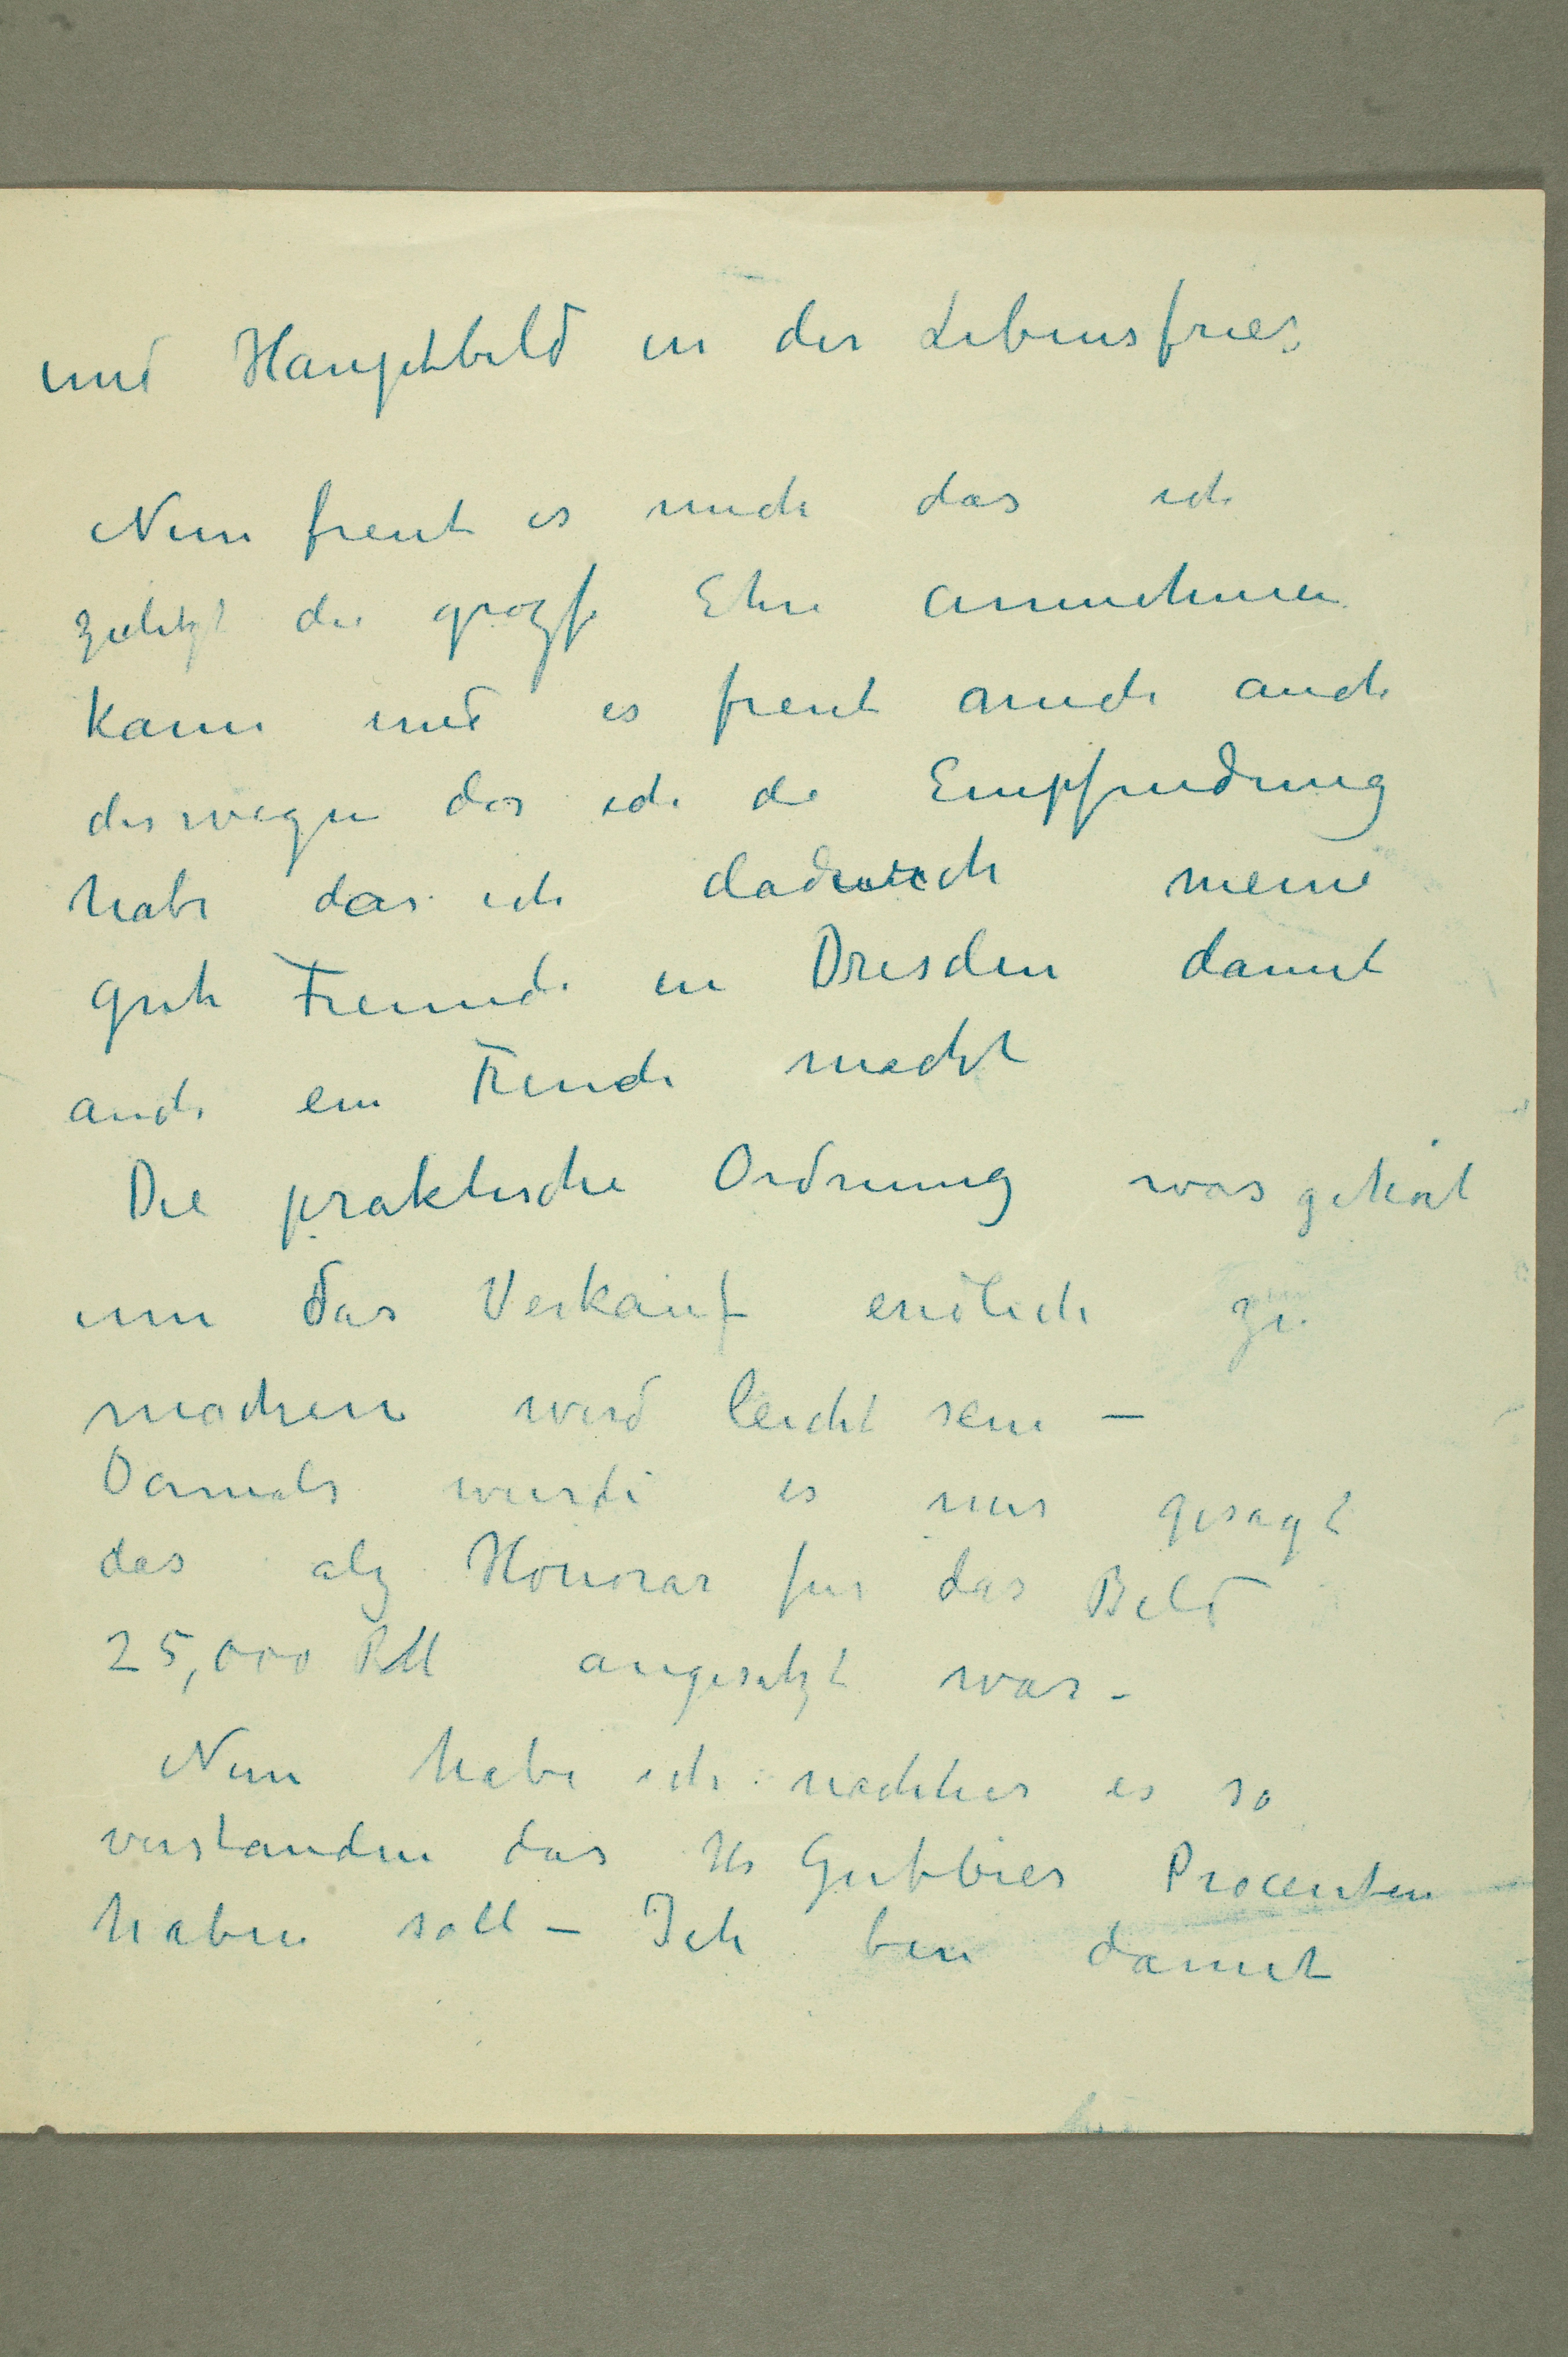 und Hauptbild in der Lebensfries
Nun freut es mich das ich
zuletzt die grozse Ehre annehmen
kann und es freut mich auch
deswegen das ich die Empfindung
habe das ich dadurch meine
gute Freunde in Dresden damit
auch ein Freude macht
Die praktische Ordnung was gehört
um das Verkauf endlich zu
machen wird leicht sein –
Damals wurde es mir gesagt
das alz Honorar fur das Bild
25,000 RM angesetzt war –
Nun habe ich nachher es so
verstanden das Hr Gutbier Procenten
haben soll – Ich bin damit